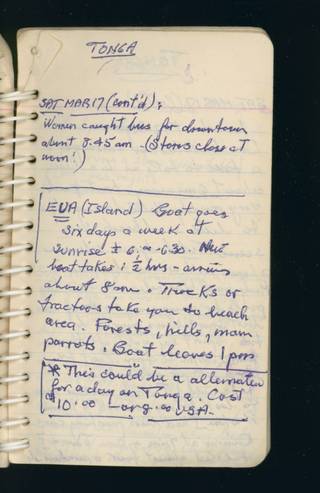 TONGA
SAT MAR 17 (cont'd):
Women caught bus for downtown
about 8.45 am - (Stores close at
noon!)
EUA (Island) Boat goes
six days a week at
sunrise ± 6 - 6.30.
boat takes 1 ½ hrs - arrives
about 8 am. Trucks or
tractors take you to beach
area. Forests, hills, many
parrots. Boat leaves 1 pm
* This could be a alternative
for a day on Tonga. Cost
$10.00 - or 8.00 USA.